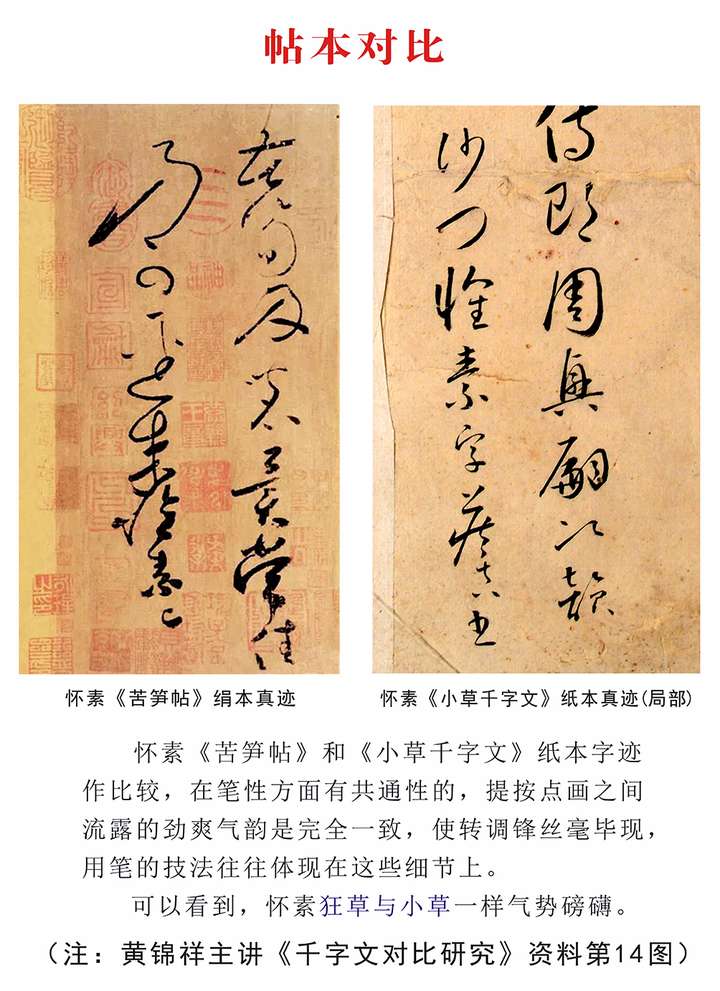 帖本对比
苦笋及茗異常佳
乃可逕來懷素上
侍郎周興嗣次韻
沙門懷素字藏真書
怀素《苦笋帖》绢本真迹
怀素《小草千字文》纸本真迹(局部)
怀素《苦笋帖》和《小草千字文》纸本字迹
作比较，在笔性方面有共通性的，提按点画之间
流露的劲爽气韵是完全一致，使转调锋丝毫毕现，
用笔的技法往往体现在这些细节上。
可以看到，怀素狂草与小草一样气势磅礴。
（注：黄锦祥主讲《千字文对比研究》资料第14图）